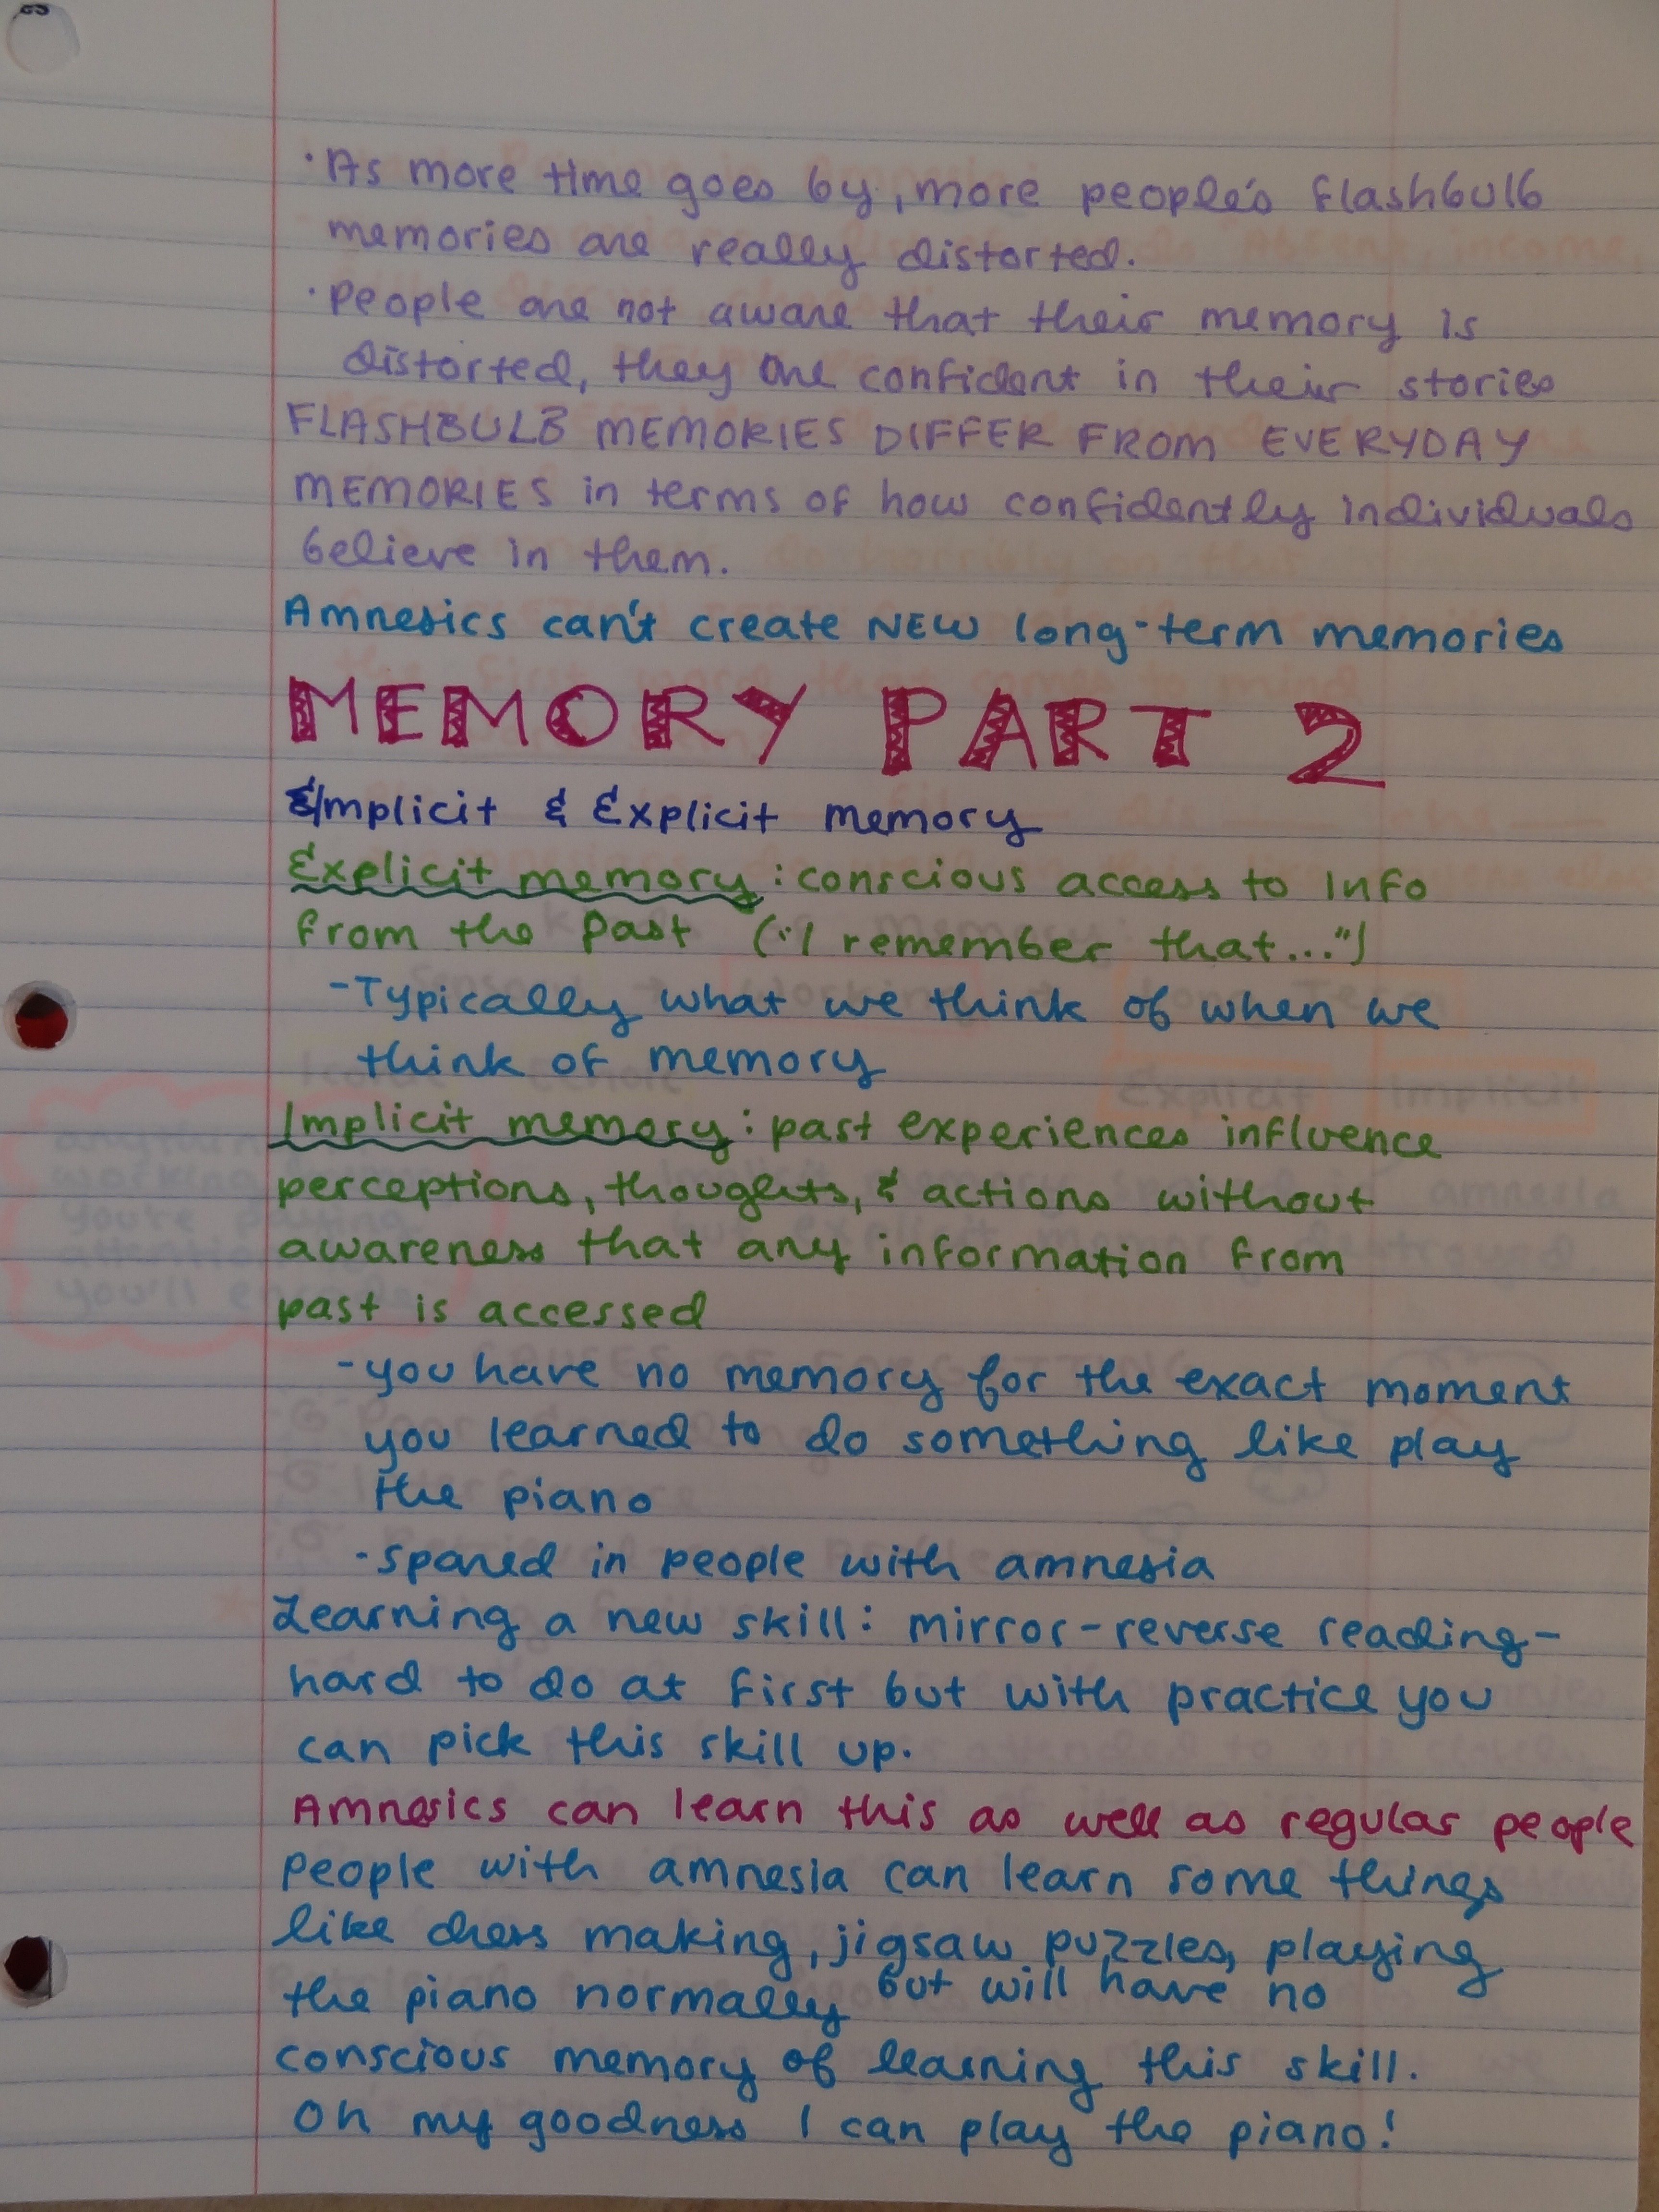 ·As more time goes by, more people's flashbulb
memories are really distorted.
·People are not aware that their memory is
distorted, they are confident in their stories
FLASHBULB MEMORIES DIFFER FROM EVERYDAY
MEMORIES in terms of how confidently individuals
believe in them.
Amnesics can't create NEW long-term memories
MEMORY PART 2
Implicit & Explicit memory
Explicit memory: conscious access to info
from the past ("I remember that...")
-Typically what we think of when we
think of memory
Implicit memory: past experiences influence
perceptions, thoughts, & actions without
awareness that any information from
past is accessed
-you have no memory for the exact moment
you learned to do something like play
the piano
-spared in people with amnesia
Learning a new skill: mirror-reverse reading-
hard to do at first but with practice you
can pick this skill up.
Amnesics can learn this as well as regular people
People with amnesia can learn some things
like dress making, jigsaw puzzles, playing
the piano normally but will have no
conscious memory of learning this skill.
Oh my goodness I can play the piano!